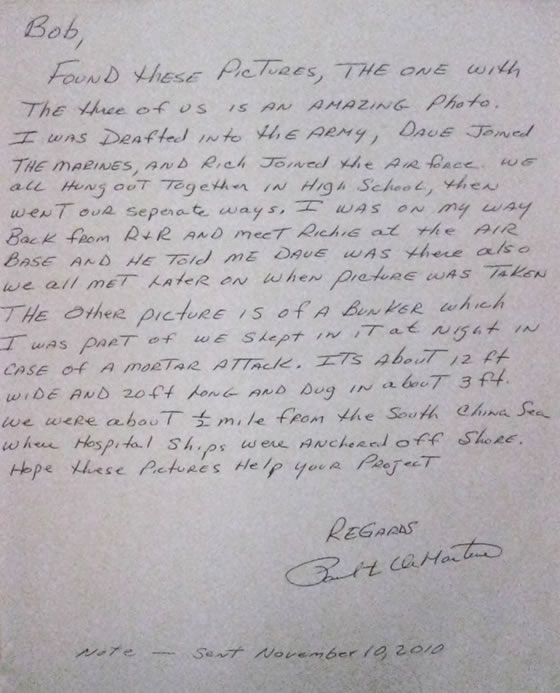 Bob,
Found these Pictures, The one with
The three of us is an amazing Photo.
I was Drafted into the Army, Dave Joined
The Marines, and Rich Joined the Air force. We
all Hung out Together in High School, then
went our seperate ways. I was on my way
Back from R+R and meet Richie at the Air
Base and He Told me Dave was there also
we all met Later on when picture was Taken
The Other picture is of a Bunker which
I was part of we slept in it at night in
case of a mortar attack. Its about 12 ft
wide and 20ft long and Dug in about 3 ft.
we were about ½ mile from the South China Sea
when Hospital Ships were anchored off Shore.
Hope these Pictures Help your Project
Regards
Note — Sent November 10, 2010